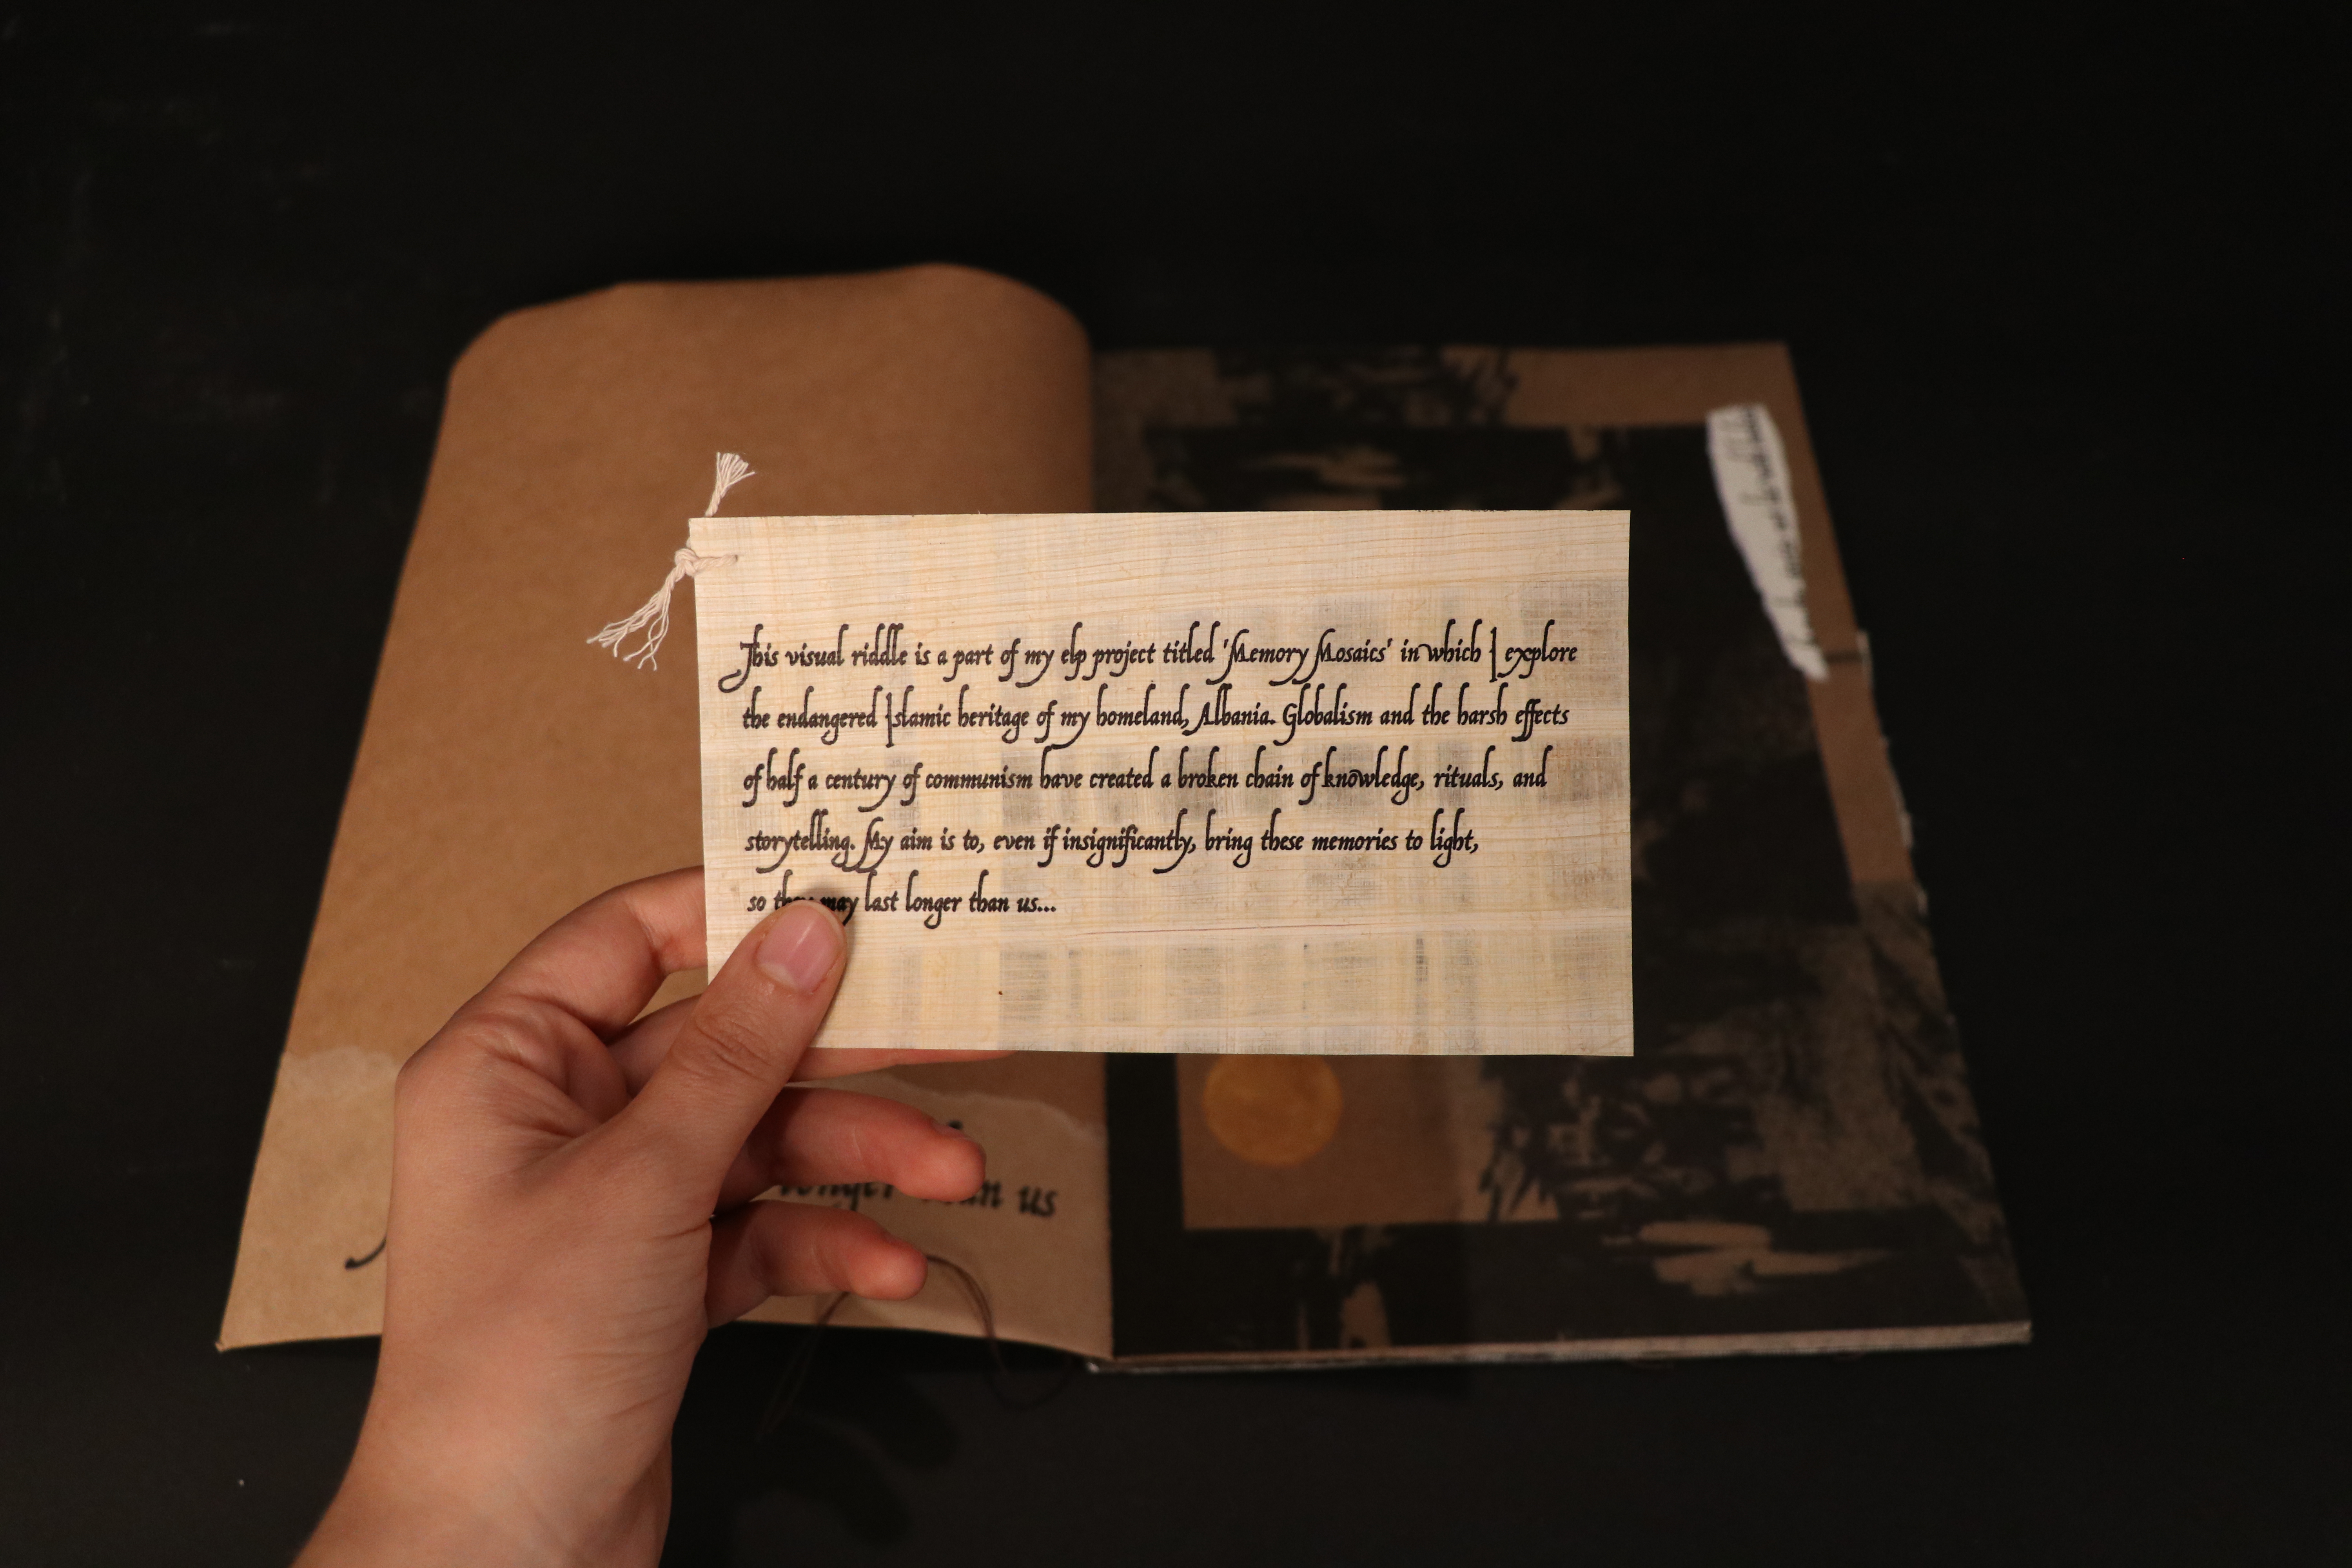 This visual riddle is a part of my elp project titled 'Memory Mosaics' in which I explore
the endangered Islamic heritage of my homeland, Albania. Globalism and the harsh effects
of half a century of communism have created a broken chain of knowledge, rituals, and
storytelling. My aim is to, even if insignificantly, bring these memories to light,
so they may last longer than us...
longer than us